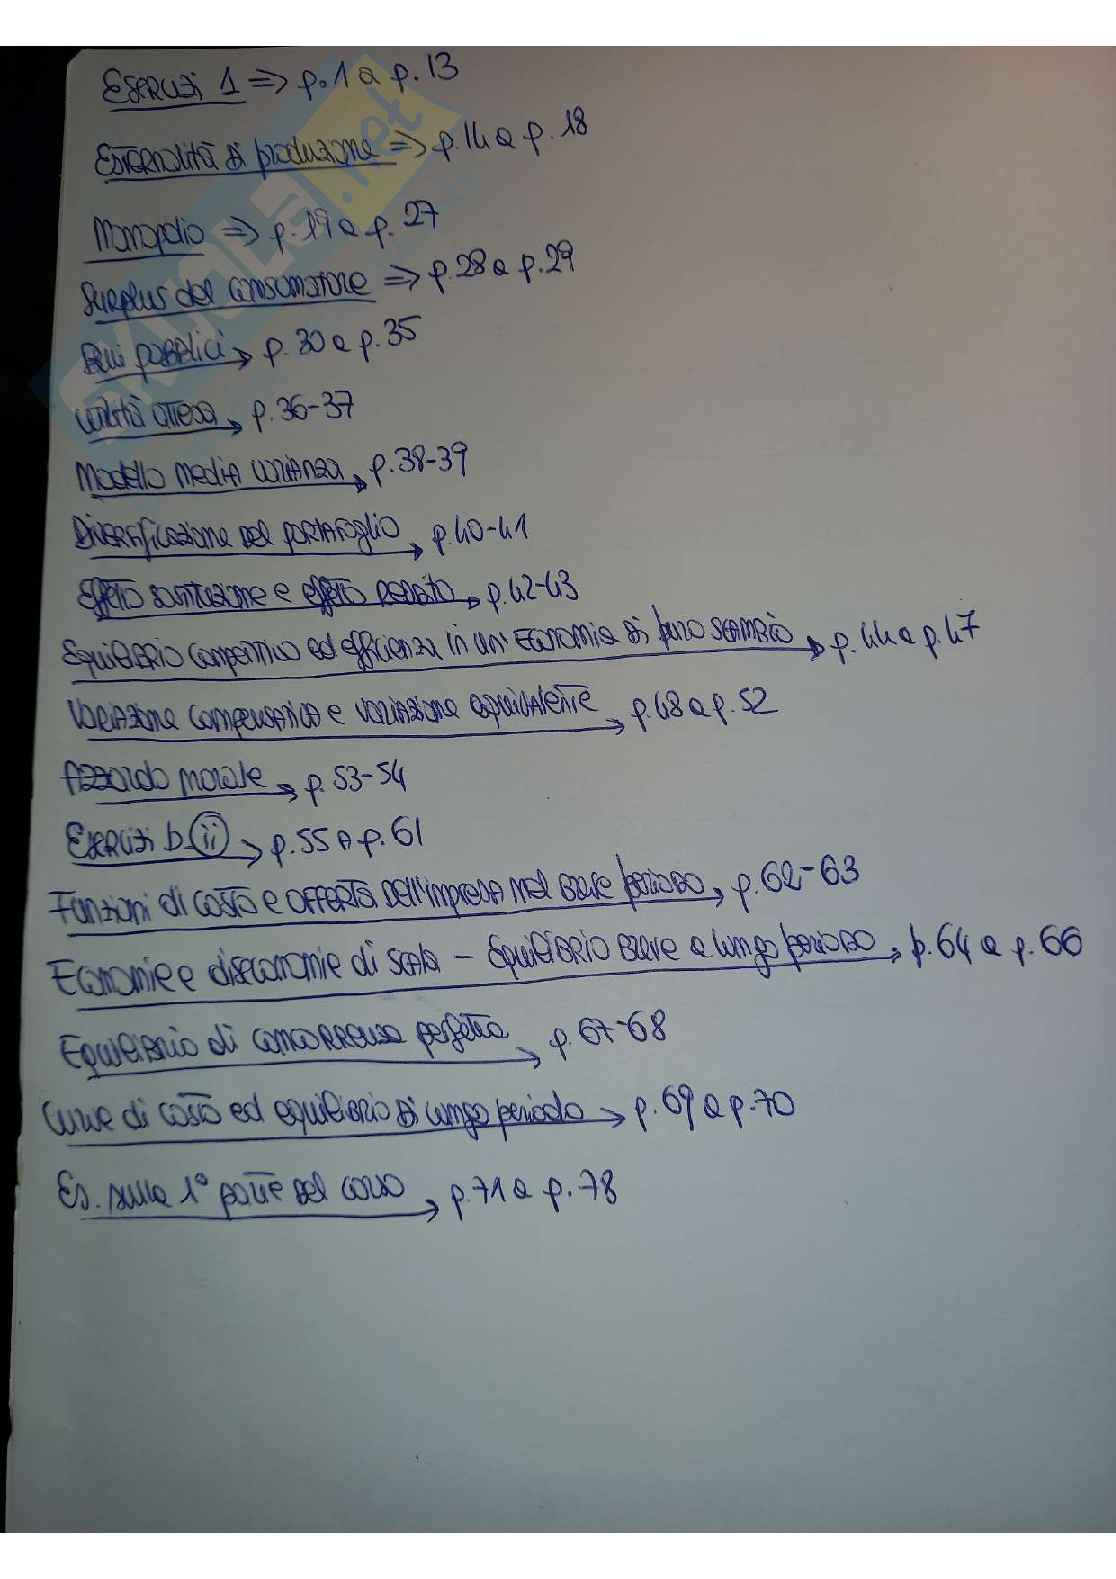 Esercizi 1 => p.1 a p.13
Esternalità di produzione => p.14 a p.18
Monopolio => p.19 a p.27
Surplus del consumatore => p.28 a p.29
Beni pubblici → p.30 a p.35
Utilità attesa → p.36-37
Modello media varianza → p.38-39
Diversificazione del portafoglio → p.40-41
Effetto sostituzione e effetto reddito → p.42-43
Equilibrio competitivo ed efficienza in un' economia di puro scambio → p.44 a p.47
Variazione compensativa e variazione equivalente → p.48 a p.52
Azzardo morale → p.53-54
Esercizi b ii → p.55 a p.61
Funzioni di costo e offerta dell'impresa nel breve periodo → p.62-63
Economie e diseconomie di scala - Equilibrio breve a lungo periodo → p.64 a p.66
Equilibrio di concorrenza perfetta → p.67-68
Curve di costo ed equilibrio di lungo periodo → p.69 a p.70
Es. sulla 1° parte del corso → p.71 a p.78
SKUOLA.net